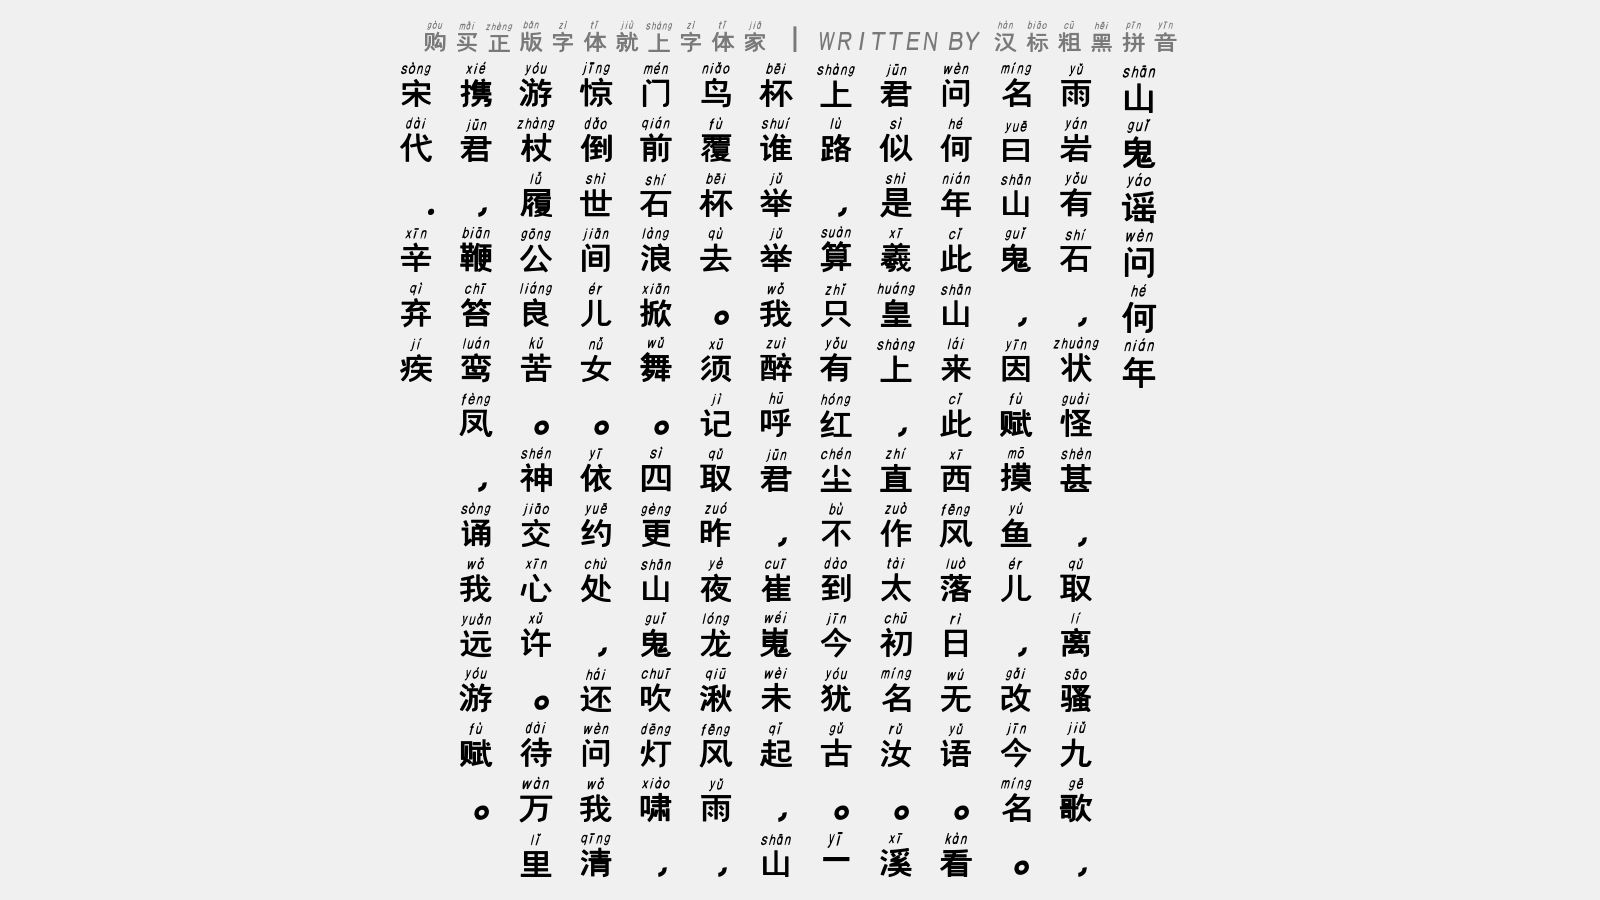 购买正版字体就上字体家 | WRITTEN BY 汉标粗黑拼音
山鬼谣问何年
雨岩有石，状怪甚，取离骚九歌，
名曰山鬼，因赋摸鱼儿，改今名。
问何年此山来此西风落日无语。看
君似是羲皇上，直作太初名汝。溪
上路，算只有红尘不到今犹古。一
杯谁举举我醉呼君，崔嵬未起，山
鸟覆杯去。须记取昨夜龙湫风雨，
门前石浪掀舞。四更山鬼吹灯啸，
惊倒世间儿女。依约处，还问我清
游杖履公良苦。神交心许。待万里
携君，鞭笞鸾凤，诵我远游赋。
宋代.辛弃疾